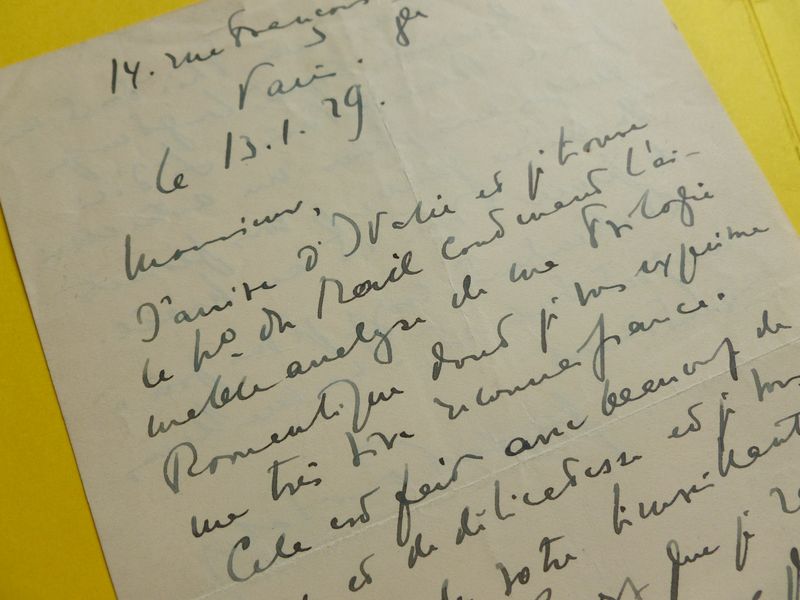 14. rue François
Paris. 8e
le 13.1.29.
Monsieur,
J'arrive d'Italie et je trouve
le no. du contenant l'ai-
mable analyse de ma Trilogie
Romantique dont je vous exprime
ma très vive reconnaissance.
Cela est fait avec beaucoup de
et de délicatesse et je vous
votre
que je